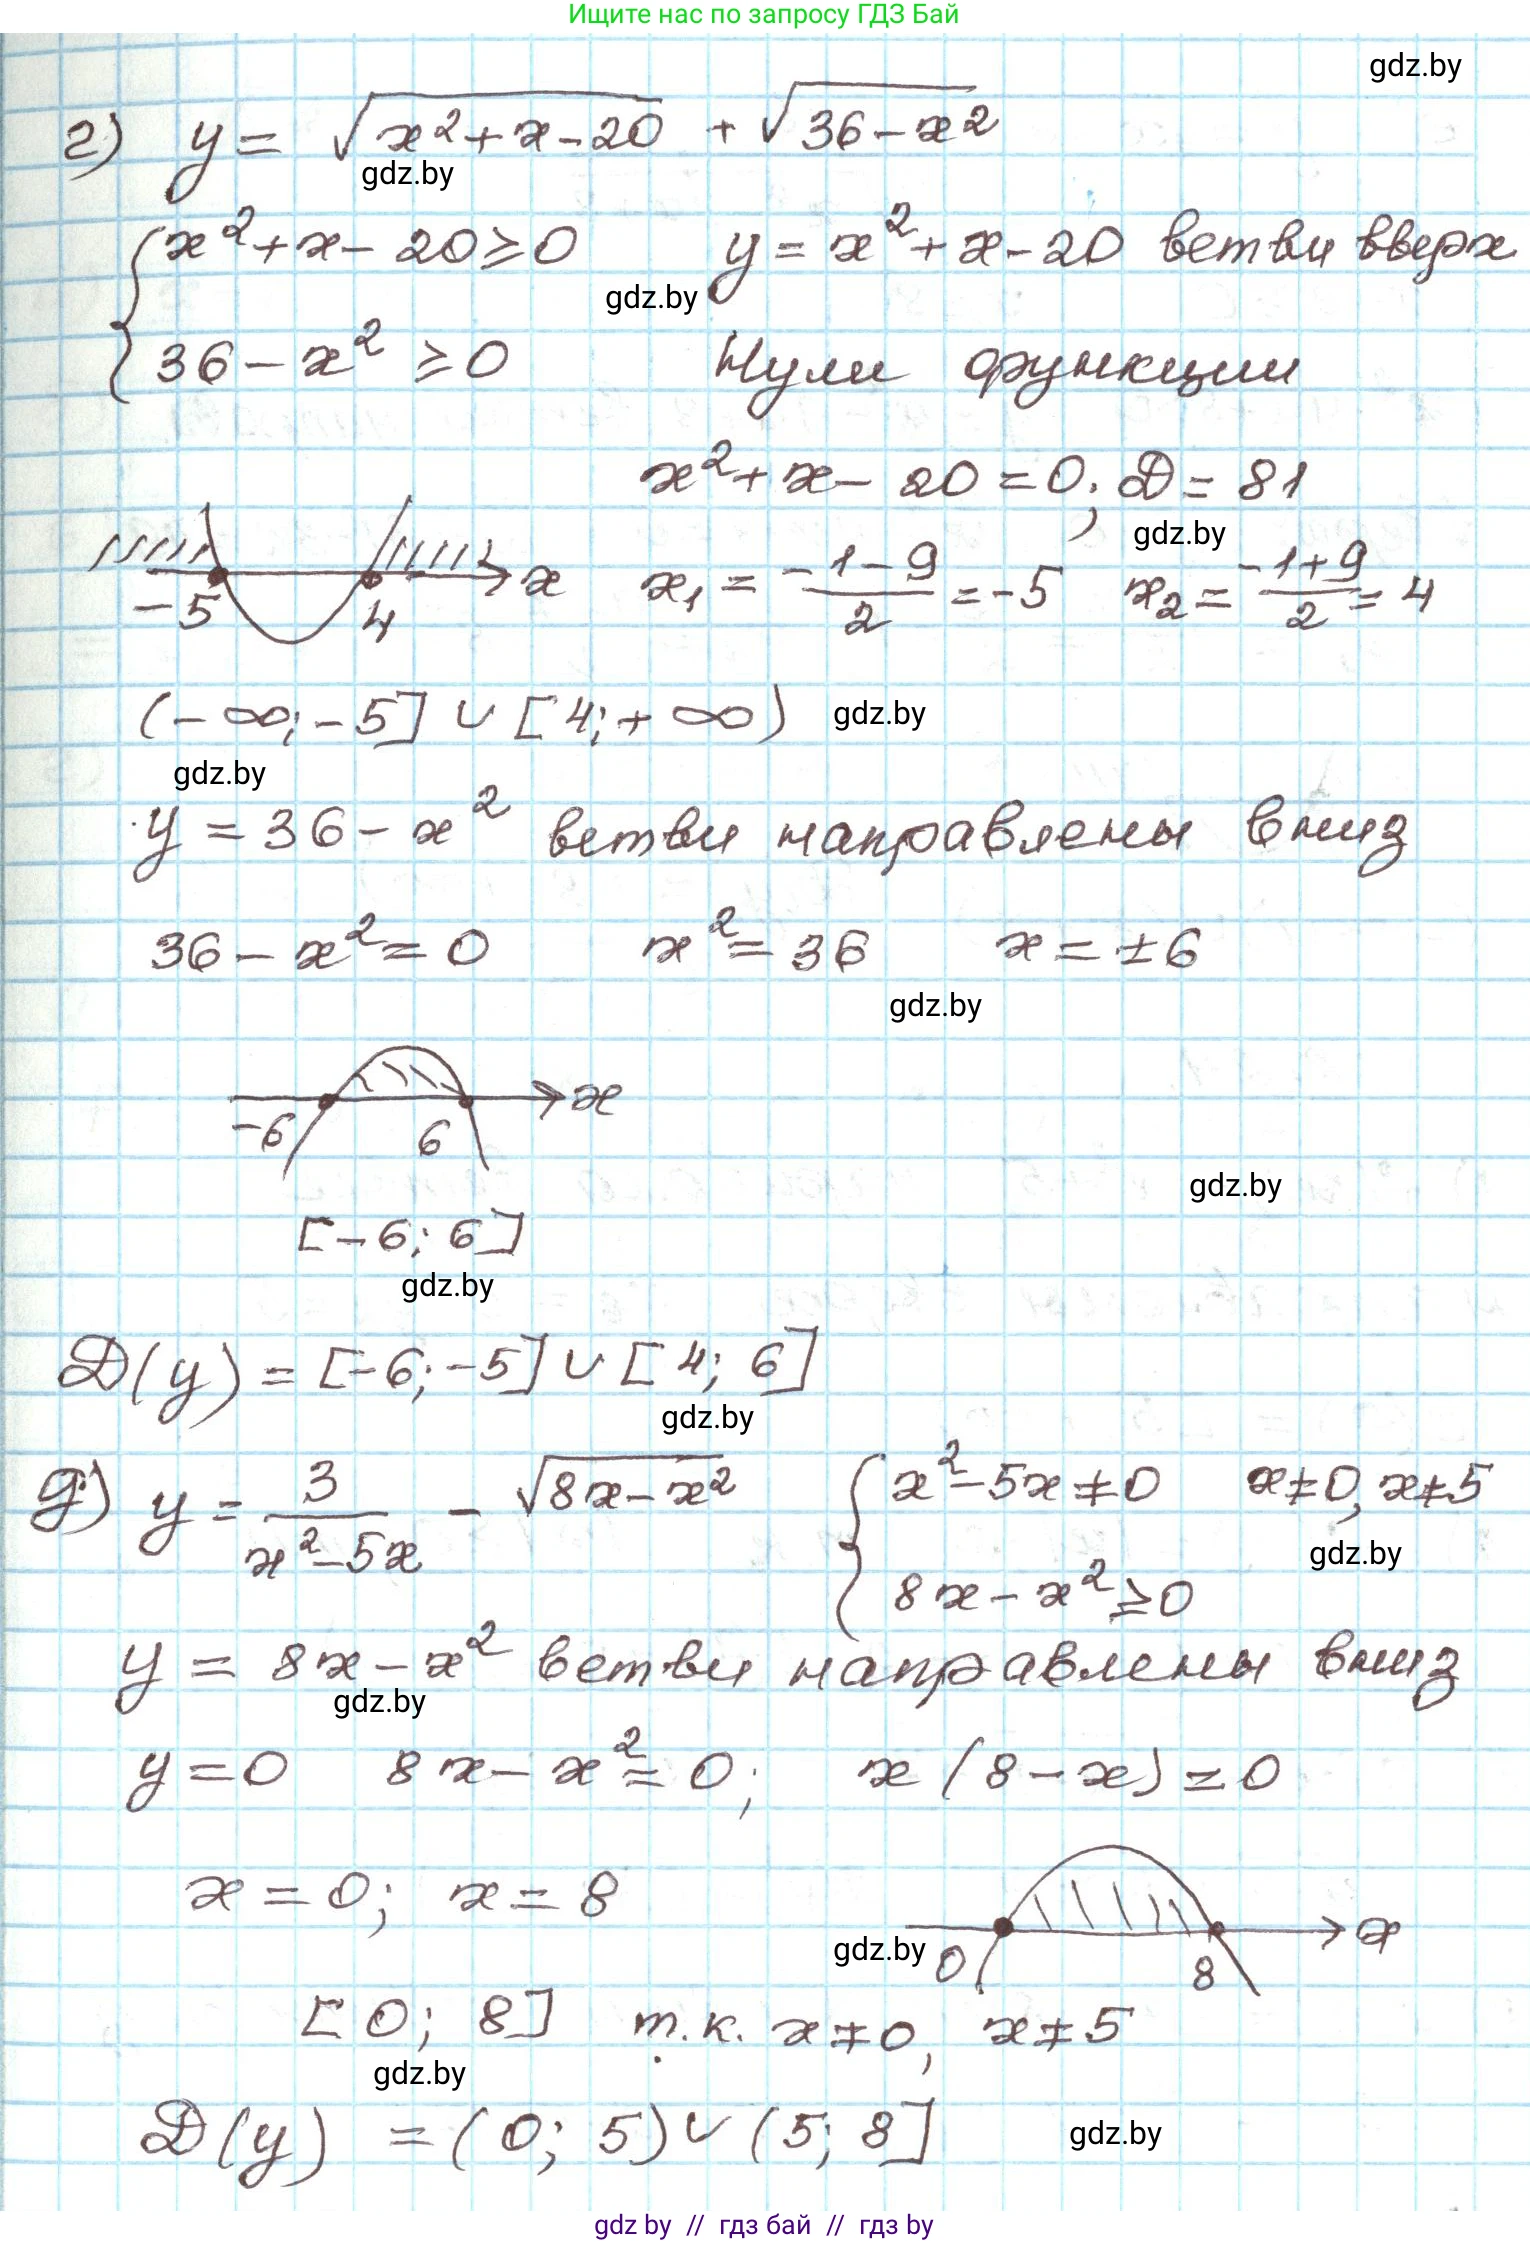 Ищите нас по запросу ГДЗ Бай
gdz.by
г) y = √(x²+x-20) + √(36-x²)
gdz.by
{ x²+x-20≥0 y = x²+x-20 ветви вверх
gdz.by
36-x² ≥0 Нули функции
x²+x-20=0; D = 81
gdz.by
-5 4 x x₁ = (-1-9)/2 = -5 x₂ = (-1+9)/2 = 4
(-∞; -5] ∪ [4; +∞) gdz.by
gdz.by
y = 36-x² ветви направлены вниз
36-x²=0 x²=36 x=±6
gdz.by
-6 6 x
gdz.by
[-6; 6]
gdz.by
D(y) = [-6; -5] ∪ [4; 6]
gdz.by
д) y = 3/(x²-5x) - √(8x-x²) { x²-5x≠0 x≠0, x≠5
gdz.by
8x-x²≥0
y = 8x-x² ветви направлены вниз
gdz.by
y=0 8x-x²=0; x(8-x)=0
x=0; x=8
gdz.by 0 8 x
[0; 8] т.к. x≠0, x≠5
gdz.by
D(y) = (0; 5) ∪ (5; 8] gdz.by
gdz by // гдз бай // gdz by